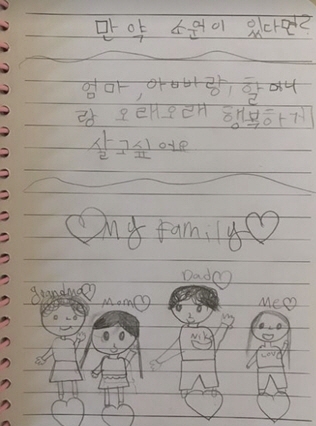 만약 소원이 있다면?
엄마, 아빠랑, 할머니
랑 오래오래 행복하게
살고싶어요
My Family
Grandma
Mom
Dad
Me